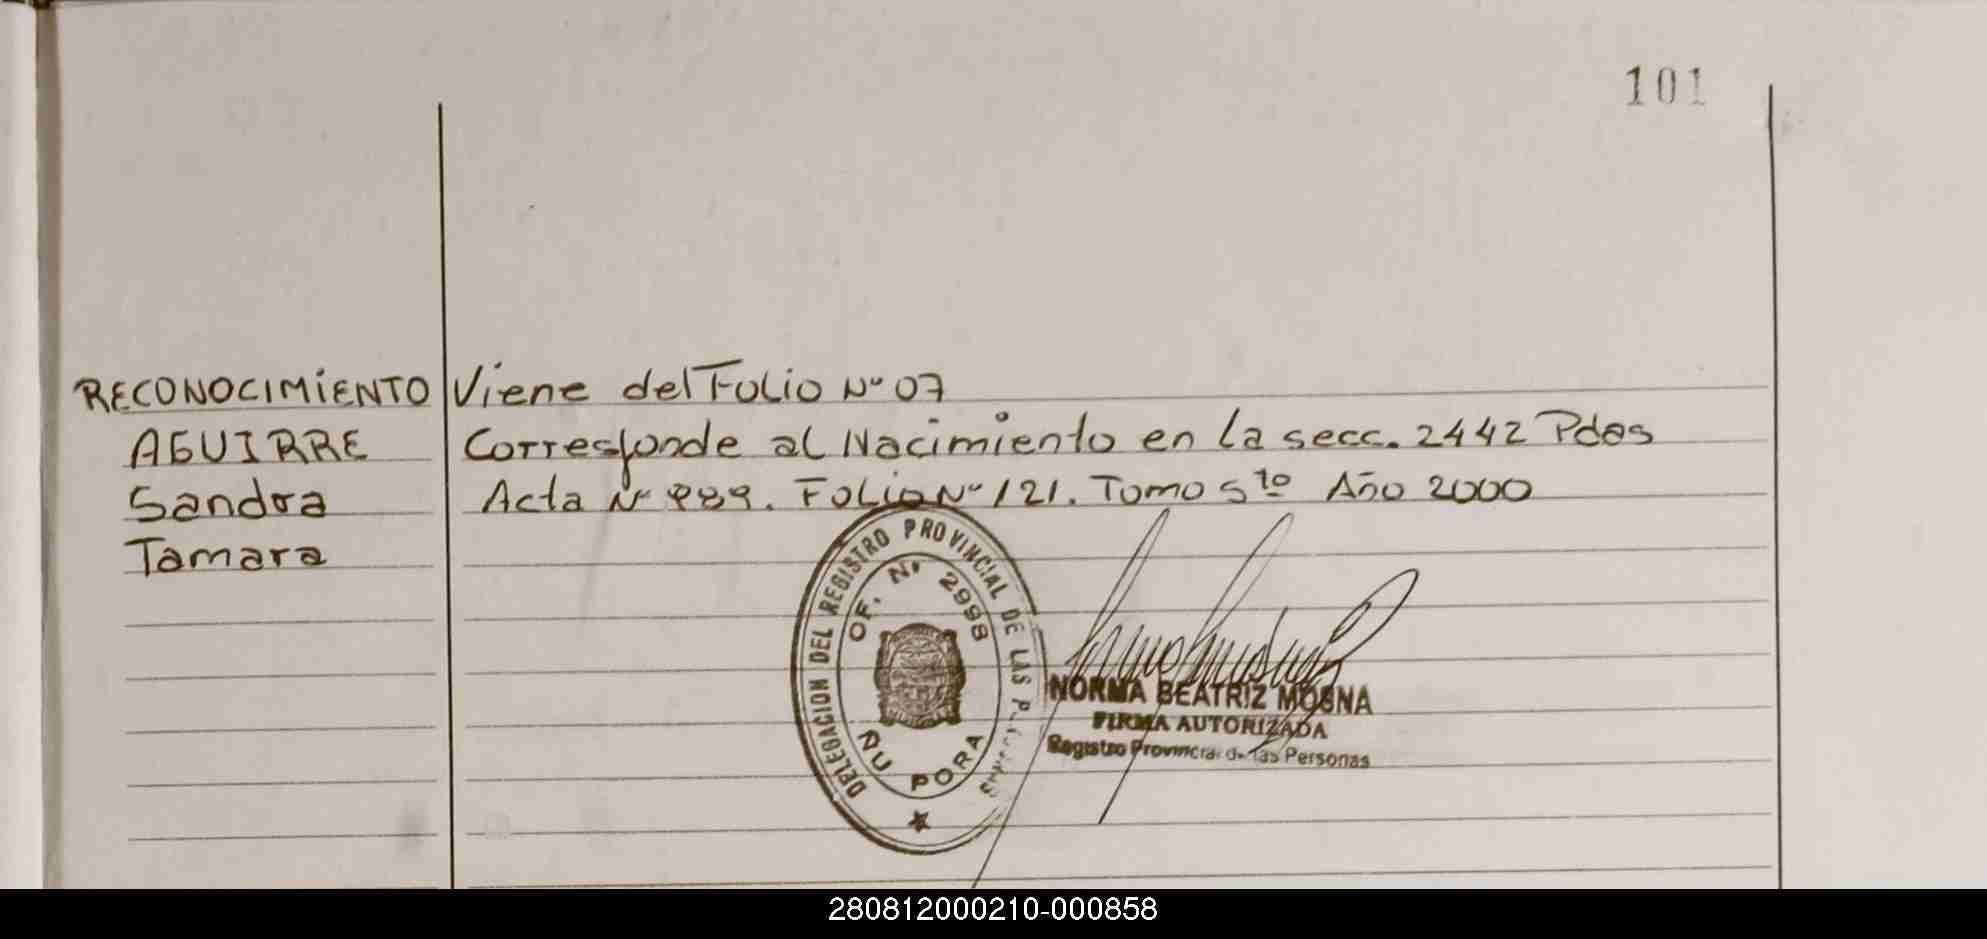 101
RECONOCIMIENTO Viene del Folio Nº 07
AGUIRRE Corresponde al Nacimiento en la secc. 2442 Pdas
Sandra Acta Nº 989. Folio Nº 121. Tomo 5to Año 2000
Tamara
DELEGACION DEL REGISTRO PROVINCIAL DE LAS
OF. Nº 2998
ÑU PORA
NORMA BEATRIZ MOSNA
FIRMA AUTORIZADA
Registro Provincial de las Personas
280812000210-000858